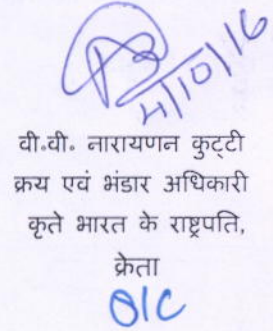 4/10/16
वी.वी. नारायणन कुट्टी
क्रय एवं भंडार अधिकारी
कृते भारत के राष्ट्रपति,
क्रेता
O/C